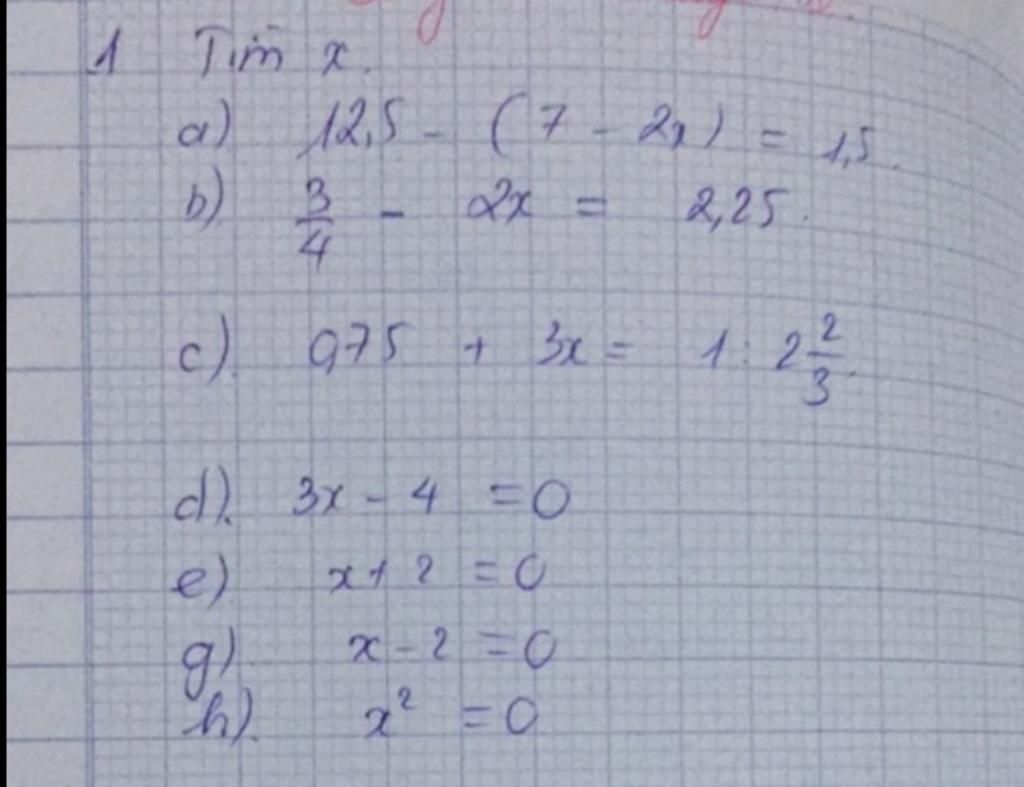 1 Tìm x.
a) 12,5 - (7 - 2x) = 1,5.
b) 3/4 - 2x = 2,25.
c) 0,75 + 3x = 1 : 2 2/3.
d). 3x - 4 = 0
e) x + 2 = 0
g) x - 2 = 0
h). x² = 0